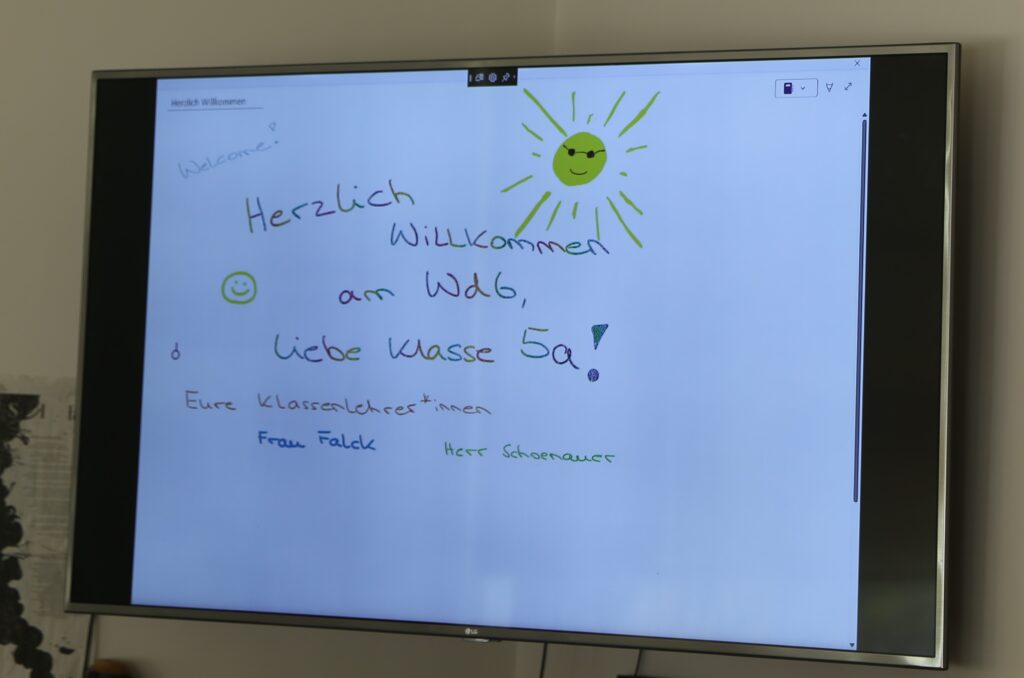 Herzlich Willkommen
Welcome!
Herzlich
Willkommen
am WdG,
liebe Klasse 5a!
Eure Klassenlehrer*innen
Frau Falck
Herr Schoenauer
LG